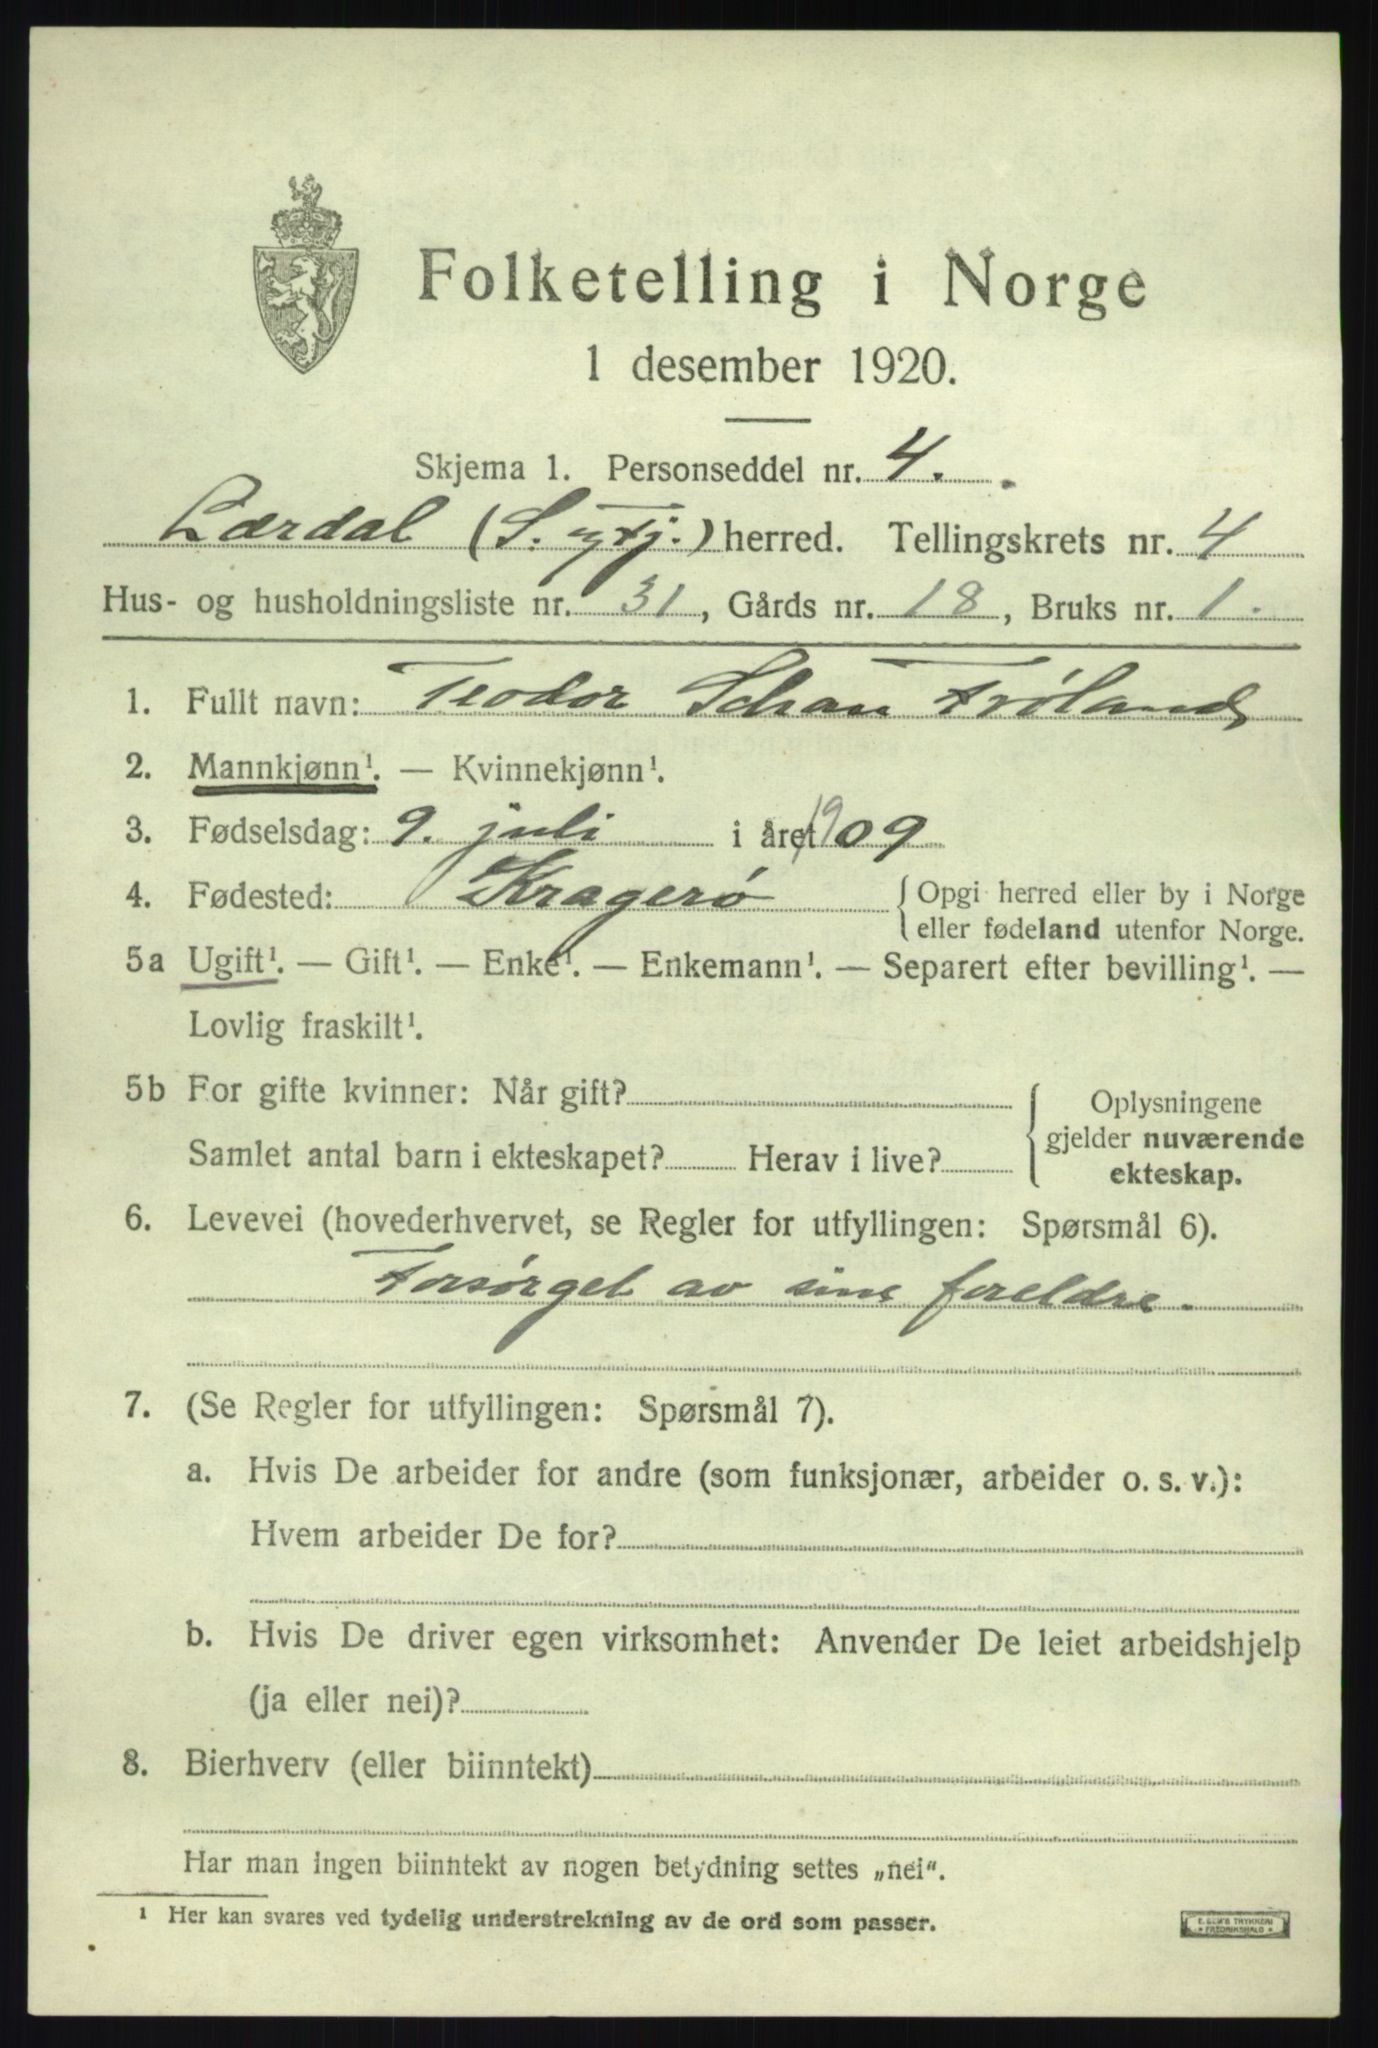 Folketelling i Norge
1 desember 1920.
Skjema 1. Personseddel nr. 4.
Lærdal (S. og Fj.) herred. Tellingskrets nr. 4
Hus- og husholdningsliste nr. 31, Gårds nr. 18, Bruks nr. 1.
1. Fullt navn: Teodor Schau Frøland
2. Mannkjønn¹. — Kvinnekjønn¹.
3. Fødselsdag: 9. juli i året 1909
4. Fødested: Kragerø { Opgi herred eller by i Norge
eller fødeland utenfor Norge.
5a Ugift¹. — Gift¹. — Enke¹. — Enkemann¹. — Separert efter bevilling¹. —
Lovlig fraskilt¹.
5b For gifte kvinner: Når gift?
Samlet antal barn i ekteskapet? Herav i live?
Oplysningene
gjelder nuværende
ekteskap.
6. Levevei (hovederhvervet, se Regler for utfyllingen: Spørsmål 6).
Forsørget av sine foreldre.
7. (Se Regler for utfyllingen: Spørsmål 7).
a. Hvis De arbeider for andre (som funksjonær, arbeider o. s. v.):
Hvem arbeider De for?
b. Hvis De driver egen virksomhet: Anvender De leiet arbeidshjelp
(ja eller nei)?
8. Bierhverv (eller biinntekt)
Har man ingen biinntekt av nogen betydning settes „nei“.
¹ Her kan svares ved tydelig understrekning av de ord som passer.
E. SEM'S TRYKKERI
* FREDRIKSHALD *